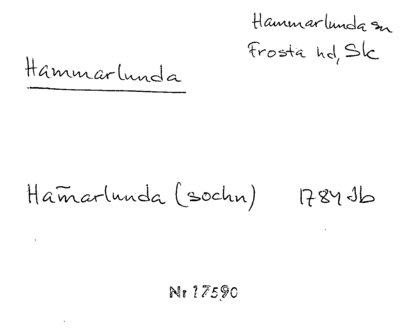 Hammarlunda sn
Frosta hd, Sk
Hammarlunda
Ham̄arlunda (sochn) 1784 Jb
Nr 17590